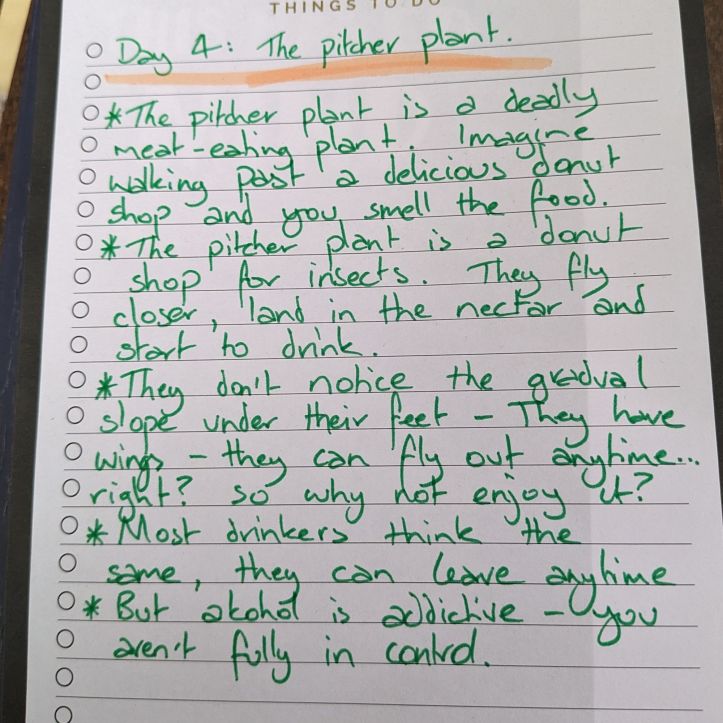 THINGS TO DO
Day 4: The pitcher plant.
*The pitcher plant is a deadly
meat-eating plant. Imagine
walking past a delicious donut
shop and you smell the food.
*The pitcher plant is a donut
shop for insects. They fly
closer, land in the nectar and
start to drink.
*They don't notice the gradual
slope under their feet - They have
wings - they can fly out anytime...
right? so why not enjoy it?
*Most drinkers think the
same, they can leave anytime
*But alcohol is addictive - you
aren't fully in control.